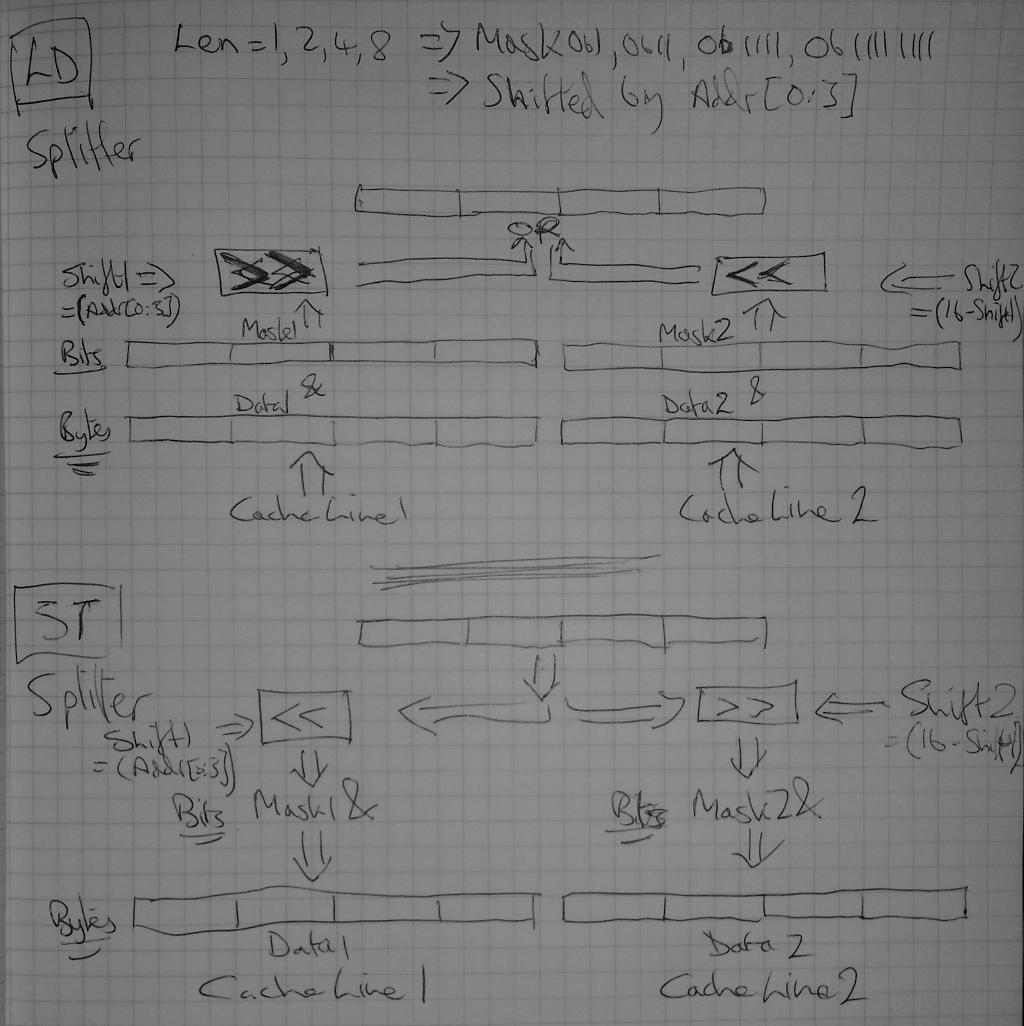 LD
Len=1,2,4,8 => Mask 0b1, 0b11, 0b1111, 0b11111111
=> Shifted by Addr[0:3]
Splitter
OR
Shift1 =>
=(Addr[0:3])
>>
<<
<= Shift2
=(16-Shift1)
Mask1
Mask2
Bits
&
&
Data1
Data2
Bytes
Cache Line 1
Cache Line 2
ST
Splitter
Shift1 =>
=(Addr[0:3])
<<
>>
<= Shift2
=(16-Shift1)
Bits Mask1 &
Bits Mask2 &
Bytes
Data1
Data 2
Cache Line 1
Cache Line 2